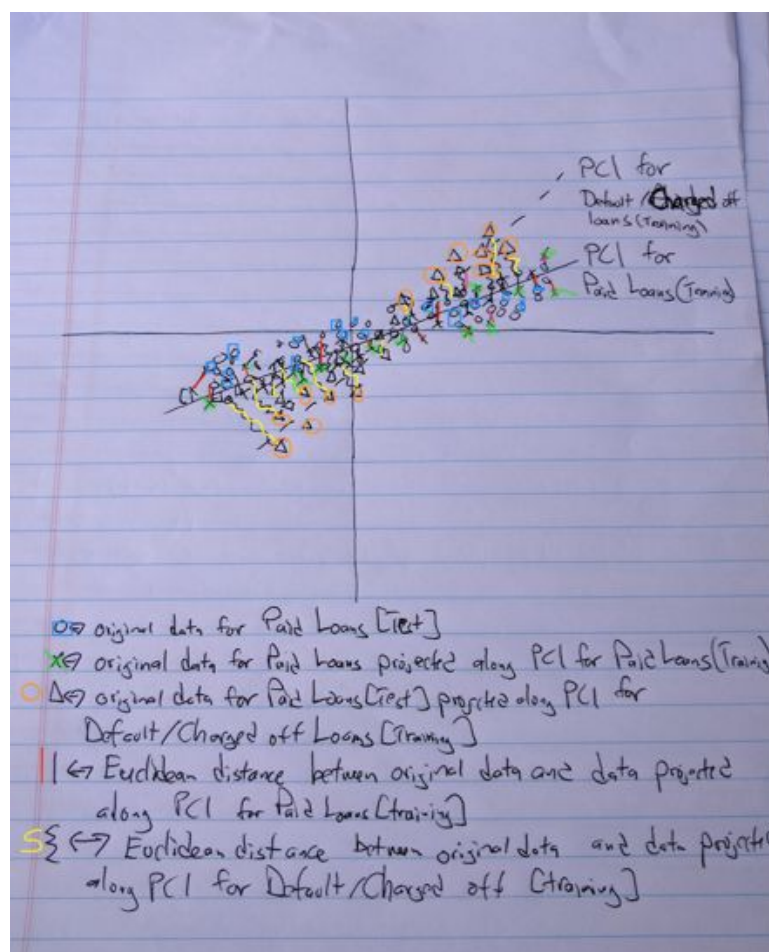 PC1 for
Default/Charged off
loans (Training)
PC1 for
Paid Loans (Training)
O↔ original data for Paid Loans [Test]
X↔ original data for Paid Loans projected along PC1 for Paid Loans (Training)
O Δ↔ original data for Paid Loans [Test] projected along PC1 for
Default/Charged off Loans [Training]
| ↔ Euclidean distance between original data and data projected
along PC1 for Paid Loans [training]
↔ Euclidean distance between original data and data projected
along PC1 for Default/Charged off [training]